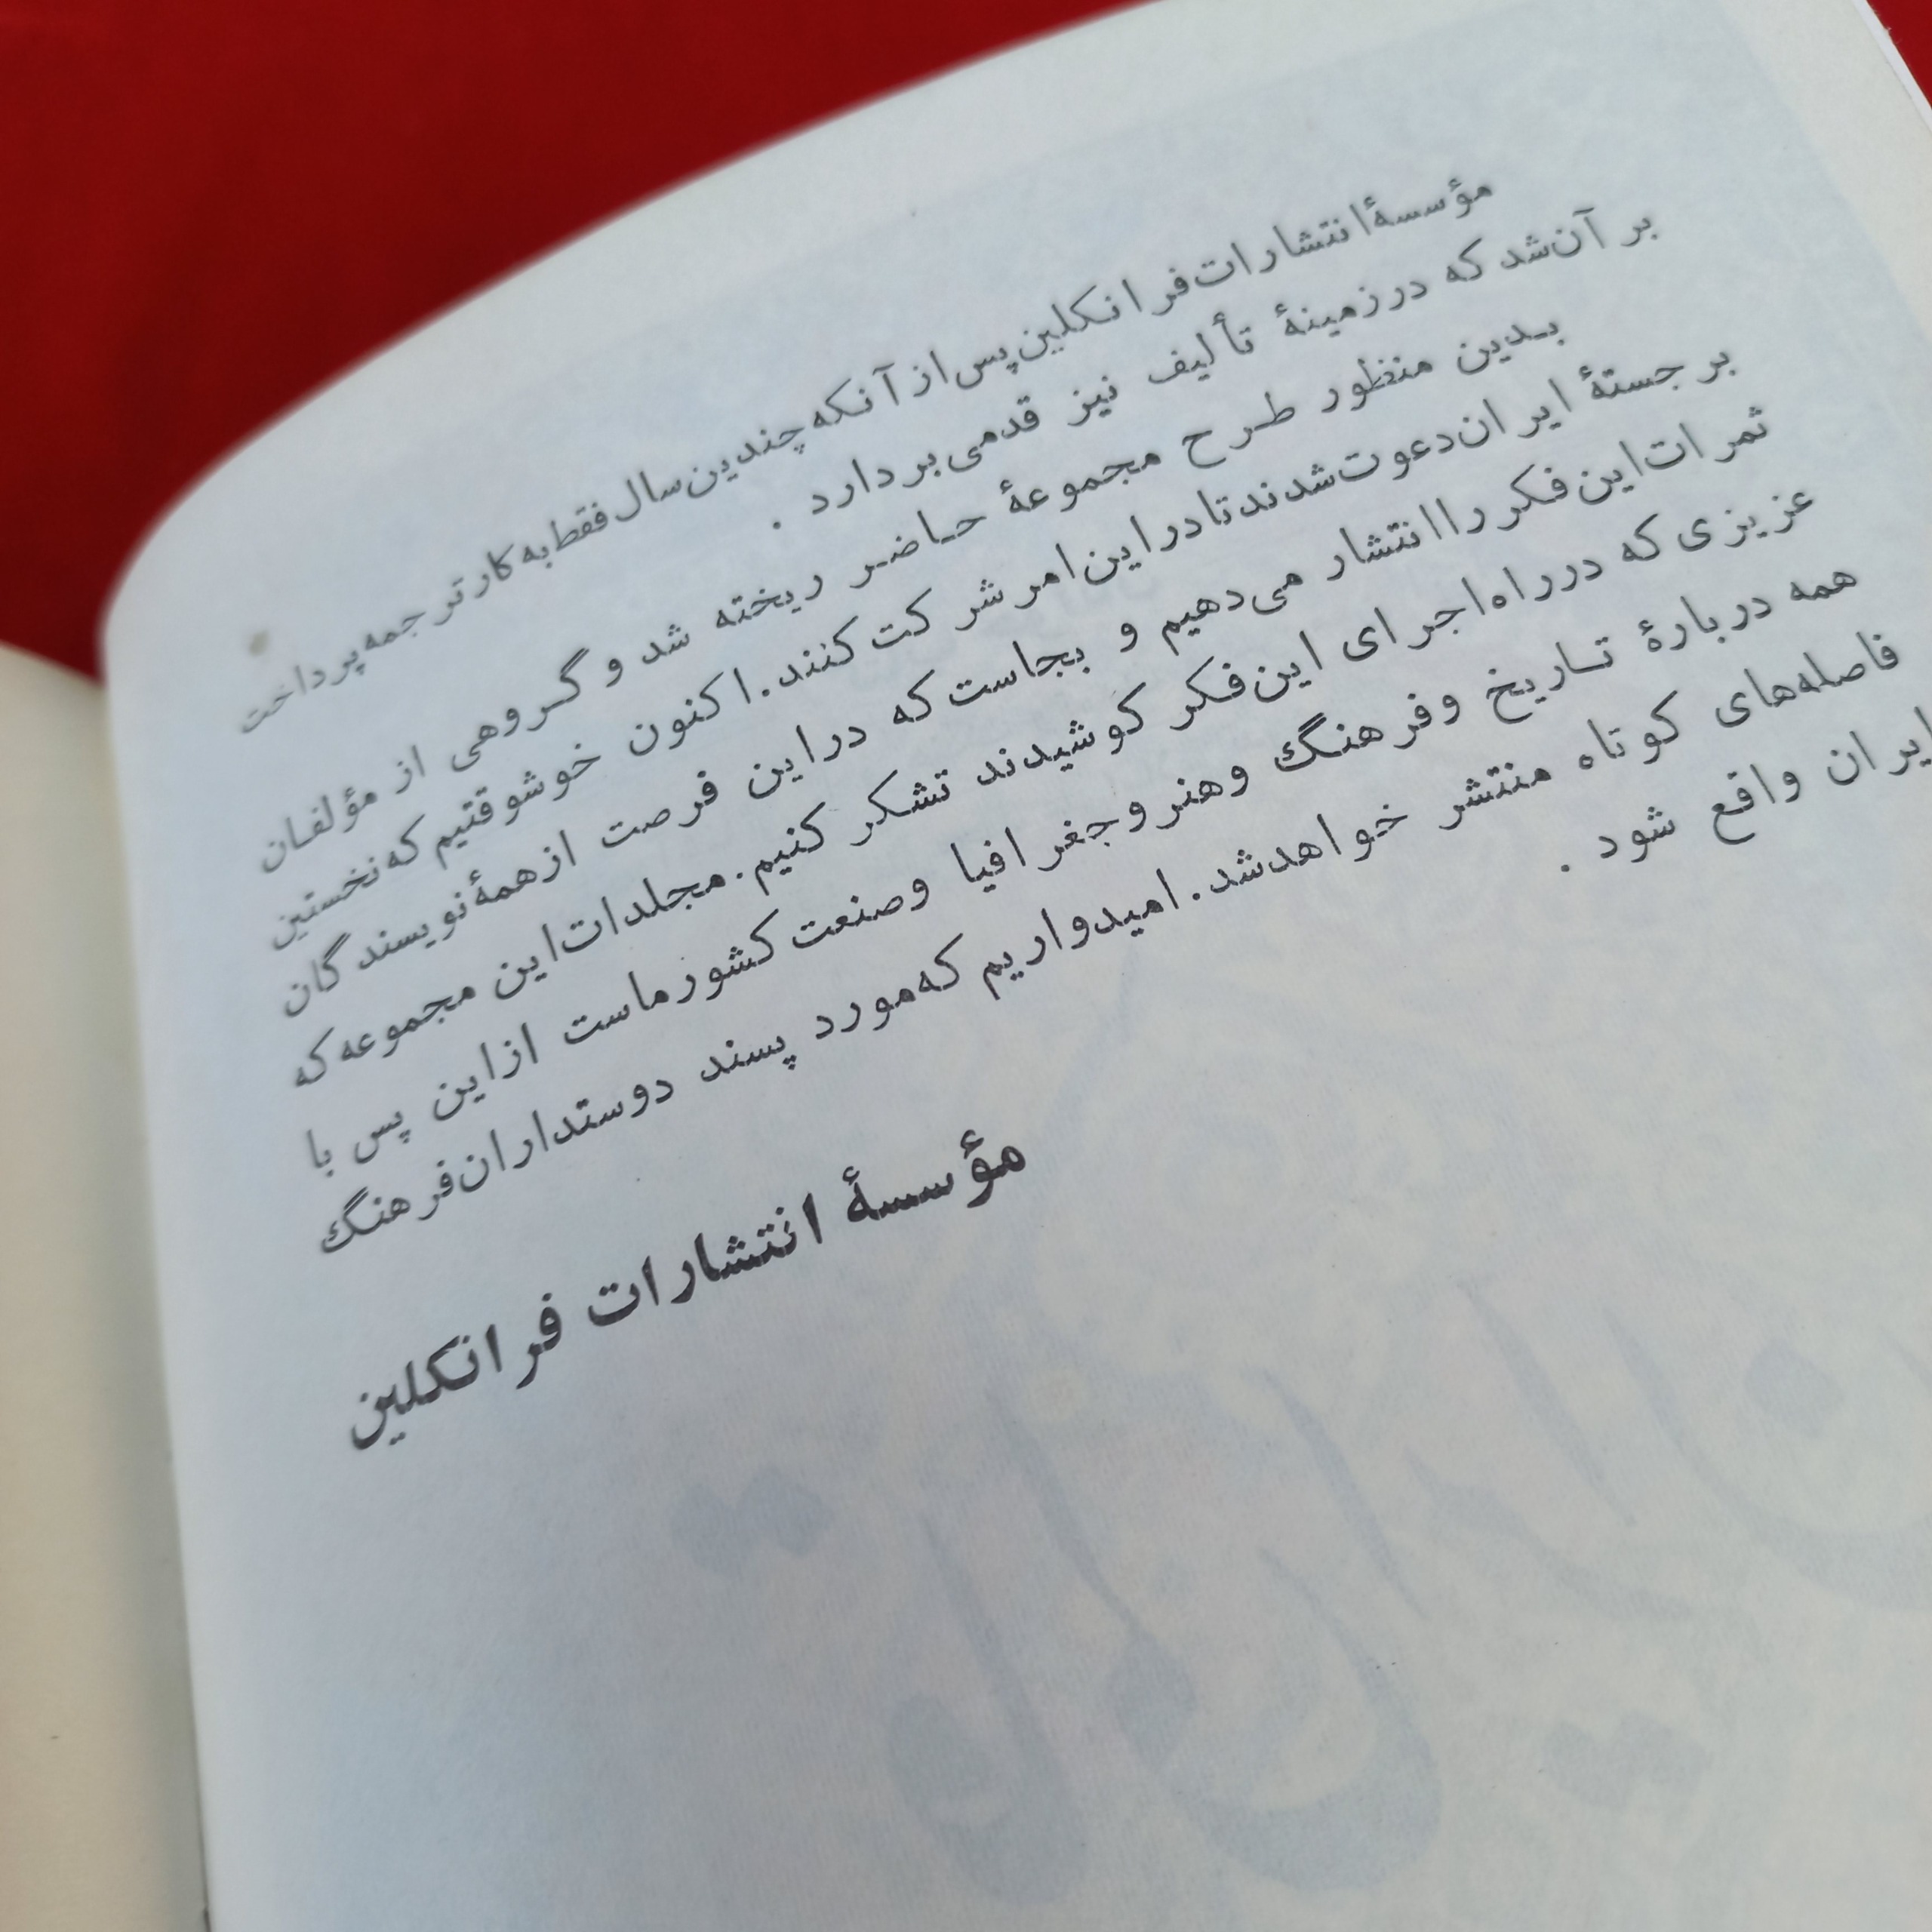 مؤسسهٔ انتشارات فرانکلین پس از آنکه چندین سال فقط به کار ترجمه پرداخت
بر آن شد که در زمینهٔ تألیف نیز قدمی بردارد .
بدین منظور طرح مجموعهٔ حاضر ریخته شد و گروهی از مؤلفان
برجستهٔ ایران دعوت شدند تا در این امر شرکت کنند. اکنون خوشوقتیم که نخستین
ثمرات این فکر را انتشار می‌دهیم و بجاست که در این فرصت از همهٔ نویسندگان
عزیزی که در راه اجرای این فکر کوشیدند تشکر کنیم. مجلدات این مجموعه که
همه دربارهٔ تاریخ و فرهنگ و هنر و جغرافیا و صنعت کشور ماست از این پس با
فاصله‌های کوتاه منتشر خواهد شد. امیدواریم که مورد پسند دوستداران فرهنگ
ایران واقع شود .
مؤسسهٔ انتشارات فرانکلین